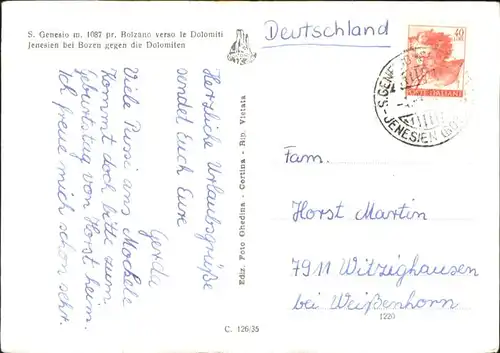 S. Genesio m. 1087 pr. Bolzano verso le Dolomiti
Jenesien bei Bozen gegen die Dolomiten
Herzliche Urlaubsgrüße
sendet Euch Eure
Gerda
Viele Bussi ans
Kommt doch bitte zum
Geburtstag von Horst heim.
Ich freue mich schon sehr.
Ediz. Foto Ghedina - Cortina - Rip. Vietata
C. 126/35
Deutschland
40
POSTE ITALIANE
S. GENE
JENESIEN (BO
Fam.
Horst Martin
7911 Witzighausen
bei Weißenhorn
1220